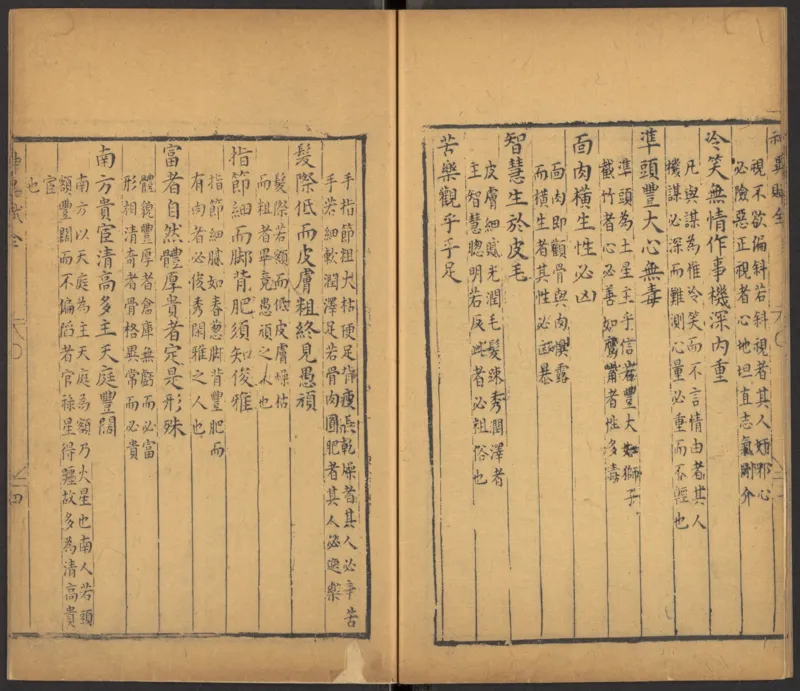 視不欲偏斜若斜視者其人奸邪心
必險惡正視者心地坦直志氣剛介
冷笑無情作事機深內重
凡與謀為惟冷笑而不言情由者其人
機謀必深而難測心量必重而不輕也
準頭豐大心無毒
準頭為土星主乎信若豐大如獅子
截竹者心必善如鷹嘴者性多毒
面肉橫生性必凶
面肉即顴骨與肉俱露
而橫生者其性必凶暴
智慧生於皮毛
皮膚細膩光潤毛髮疎秀潤澤者
主智慧聰明若反此者必粗俗也
苦樂觀乎手足
手指節粗大枯硬足指瘦長乾燥者其人必辛苦
手若細軟潤澤足若骨肉圓肥者其人必逸樂
髮際低而皮膚粗終見愚頑
髮際若額而低皮膚燥枯
而粗者畢竟愚頑之人也
指節細而脚背肥須知俊雅
指節細膩如春葱脚背豐肥而
有肉者必俊秀閑雅之人也
富者自然體厚貴者定是形殊
體貌豐厚者倉庫無虧而必富
形相清奇者骨格異常而必貴
南方貴宦清高多主天庭豐闊
南方以天庭為主天庭為額乃火星也南人若頭
額豐闊而不偏陷者官祿星得躔故多為清高貴
宦
也
四